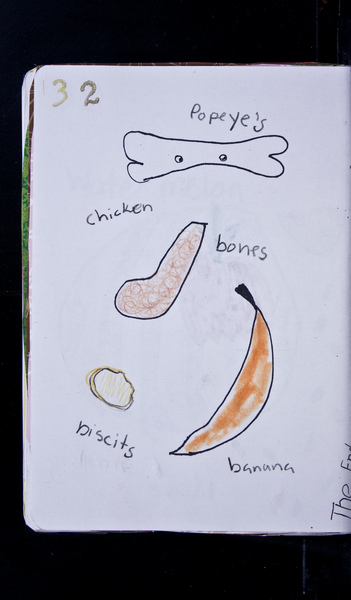 32
Popeye's
chicken
bones
biscits
banana
The End